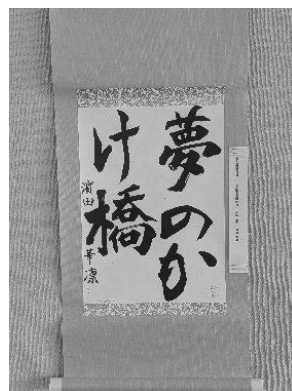 夢のか
け橋
濱田華凛